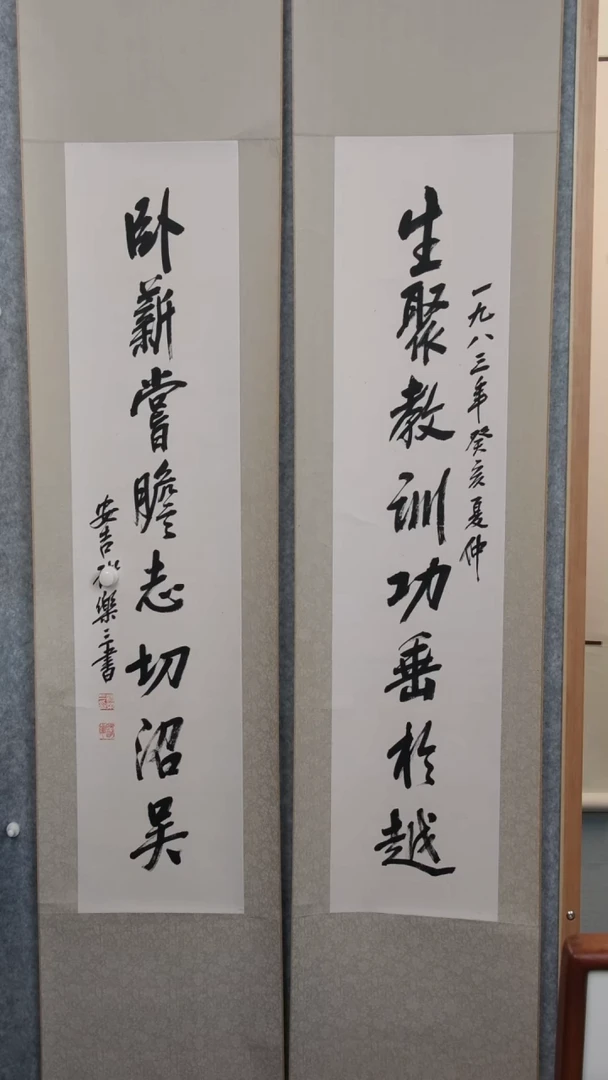 一九八三年癸亥夏仲
生聚教訓功垂於越
卧薪嘗膽志切沼吴
安吉 樂三書